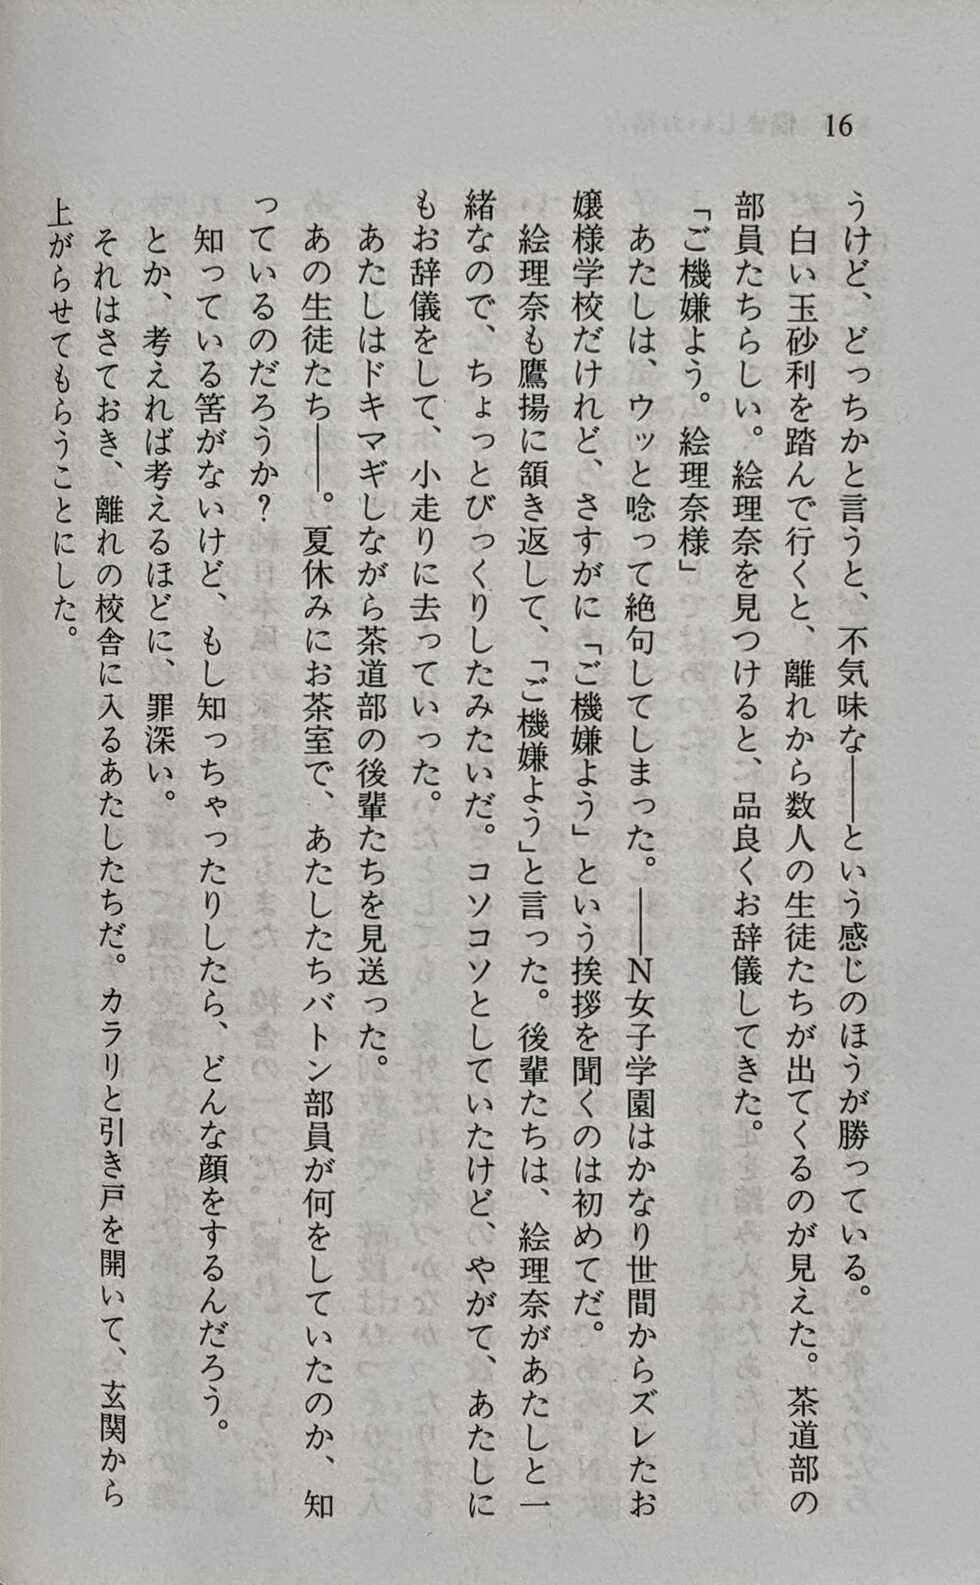 16
うけど、どっちかと言うと、不気味な――という感じのほうが勝っている。
白い玉砂利を踏んで行くと、離れから数人の生徒たちが出てくるのが見えた。茶道部の
部員たちらしい。絵理奈を見つけると、品良くお辞儀してきた。
「ご機嫌よう。絵理奈様」
あたしは、ウッと唸って絶句してしまった。――Ｎ女子学園はかなり世間からズレたお
嬢様学校だけれど、さすがに「ご機嫌よう」という挨拶を聞くのは初めてだ。
絵理奈も鷹揚に頷き返して、「ご機嫌よう」と言った。後輩たちは、絵理奈があたしと一
緒なので、ちょっとびっくりしたみたいだ。コソコソとしていたけど、やがて、あたしに
もお辞儀をして、小走りに去っていった。
あたしはドキマギしながら茶道部の後輩たちを見送った。
あの生徒たち――。夏休みにお茶室で、あたしたちバトン部員が何をしていたのか、知
っているのだろうか？
知っている筈がないけど、もし知っちゃったりしたら、どんな顔をするんだろう。
とか、考えれば考えるほどに、罪深い。
それはさておき、離れの校舎に入るあたしたちだ。カラリと引き戸を開いて、玄関から
上がらせてもらうことにした。